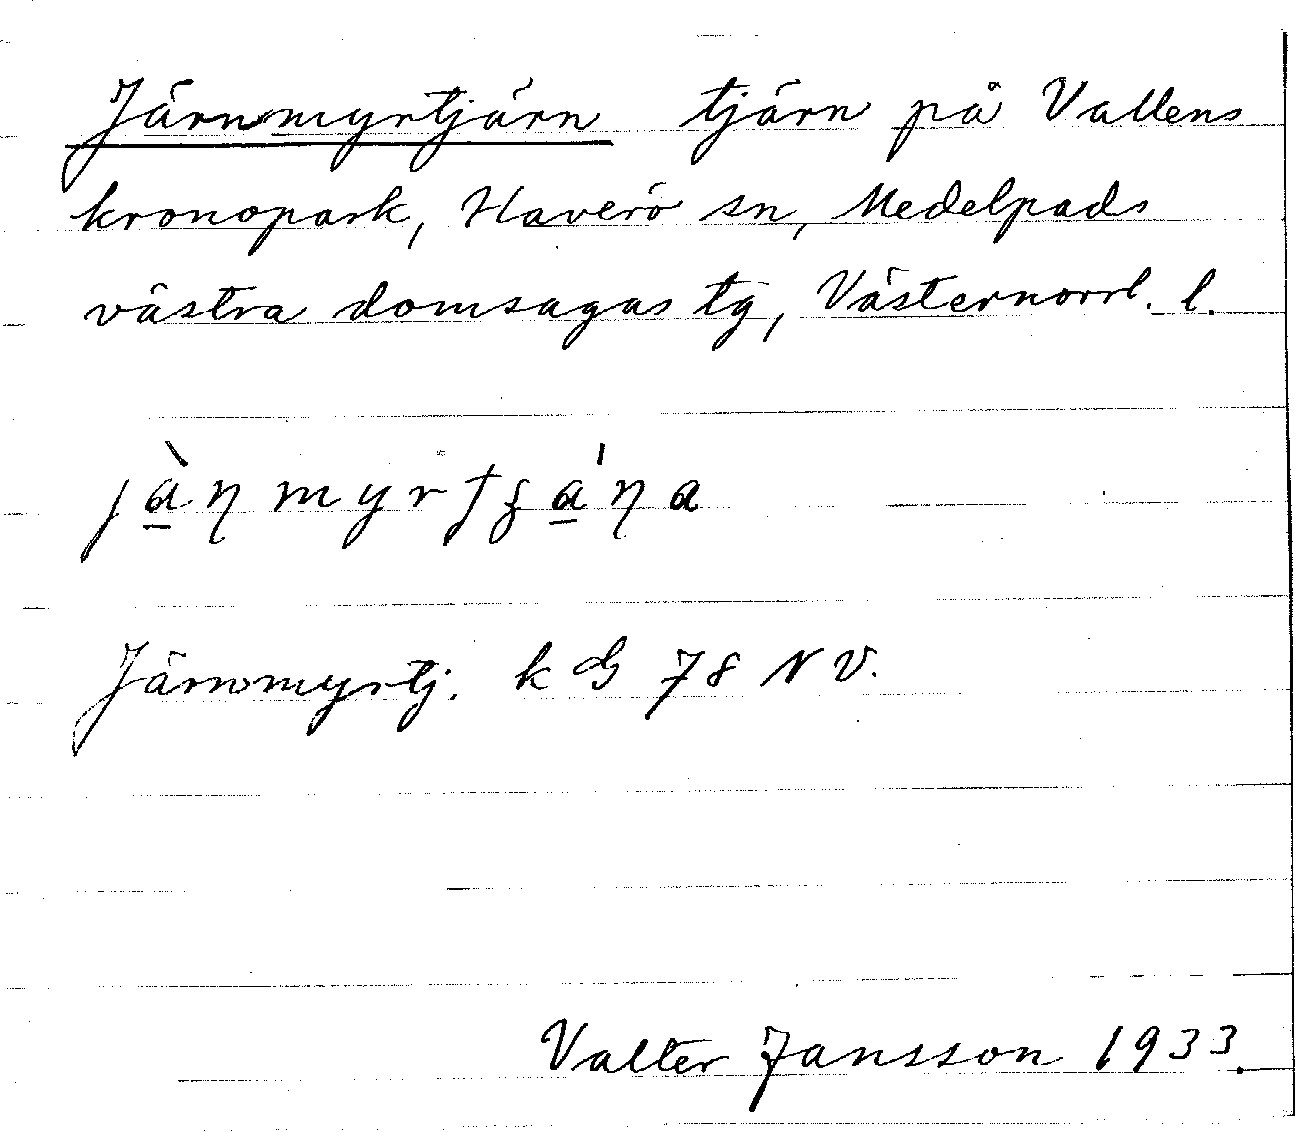 Järnmyrtjärn tjärn på Vallens
kronopark, Haverö sn, Medelpads
västra domsagas tg, Västernorrl. l.
Järnmyrtj. k G 78 N V.
Valter Jansson 1933.